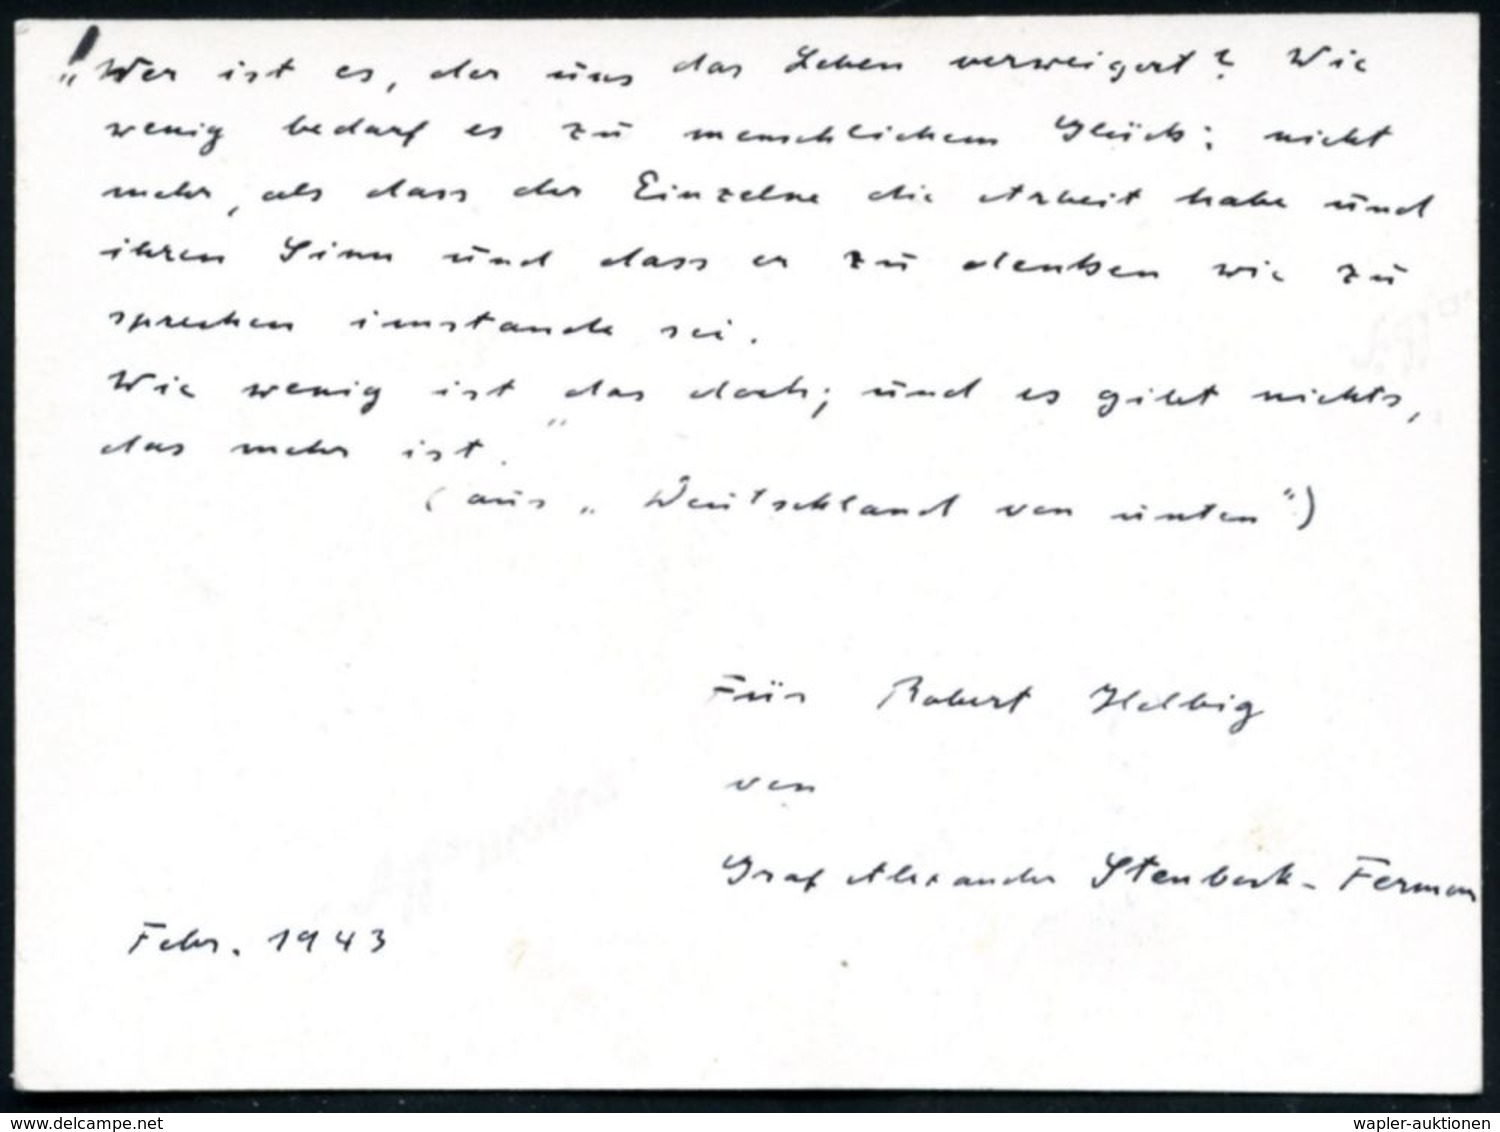 „Wer ist es, der uns das Leben verweigert? Wie
wenig bedarf es zu menschlichem Glück: nicht
mehr, als dass der Einzelne die Arbeit habe und
ihren Sinn und dass er zu denken wie zu
sprechen imstande sei.
Wie wenig ist das doch; und es gibt nichts,
das mehr ist."
(aus „Deutschland von unten")
Für Robert Helbig
von
Graf Alexander Stenbock-Fermor
Febr. 1943
www.delcampe.net
wapler-auktionen